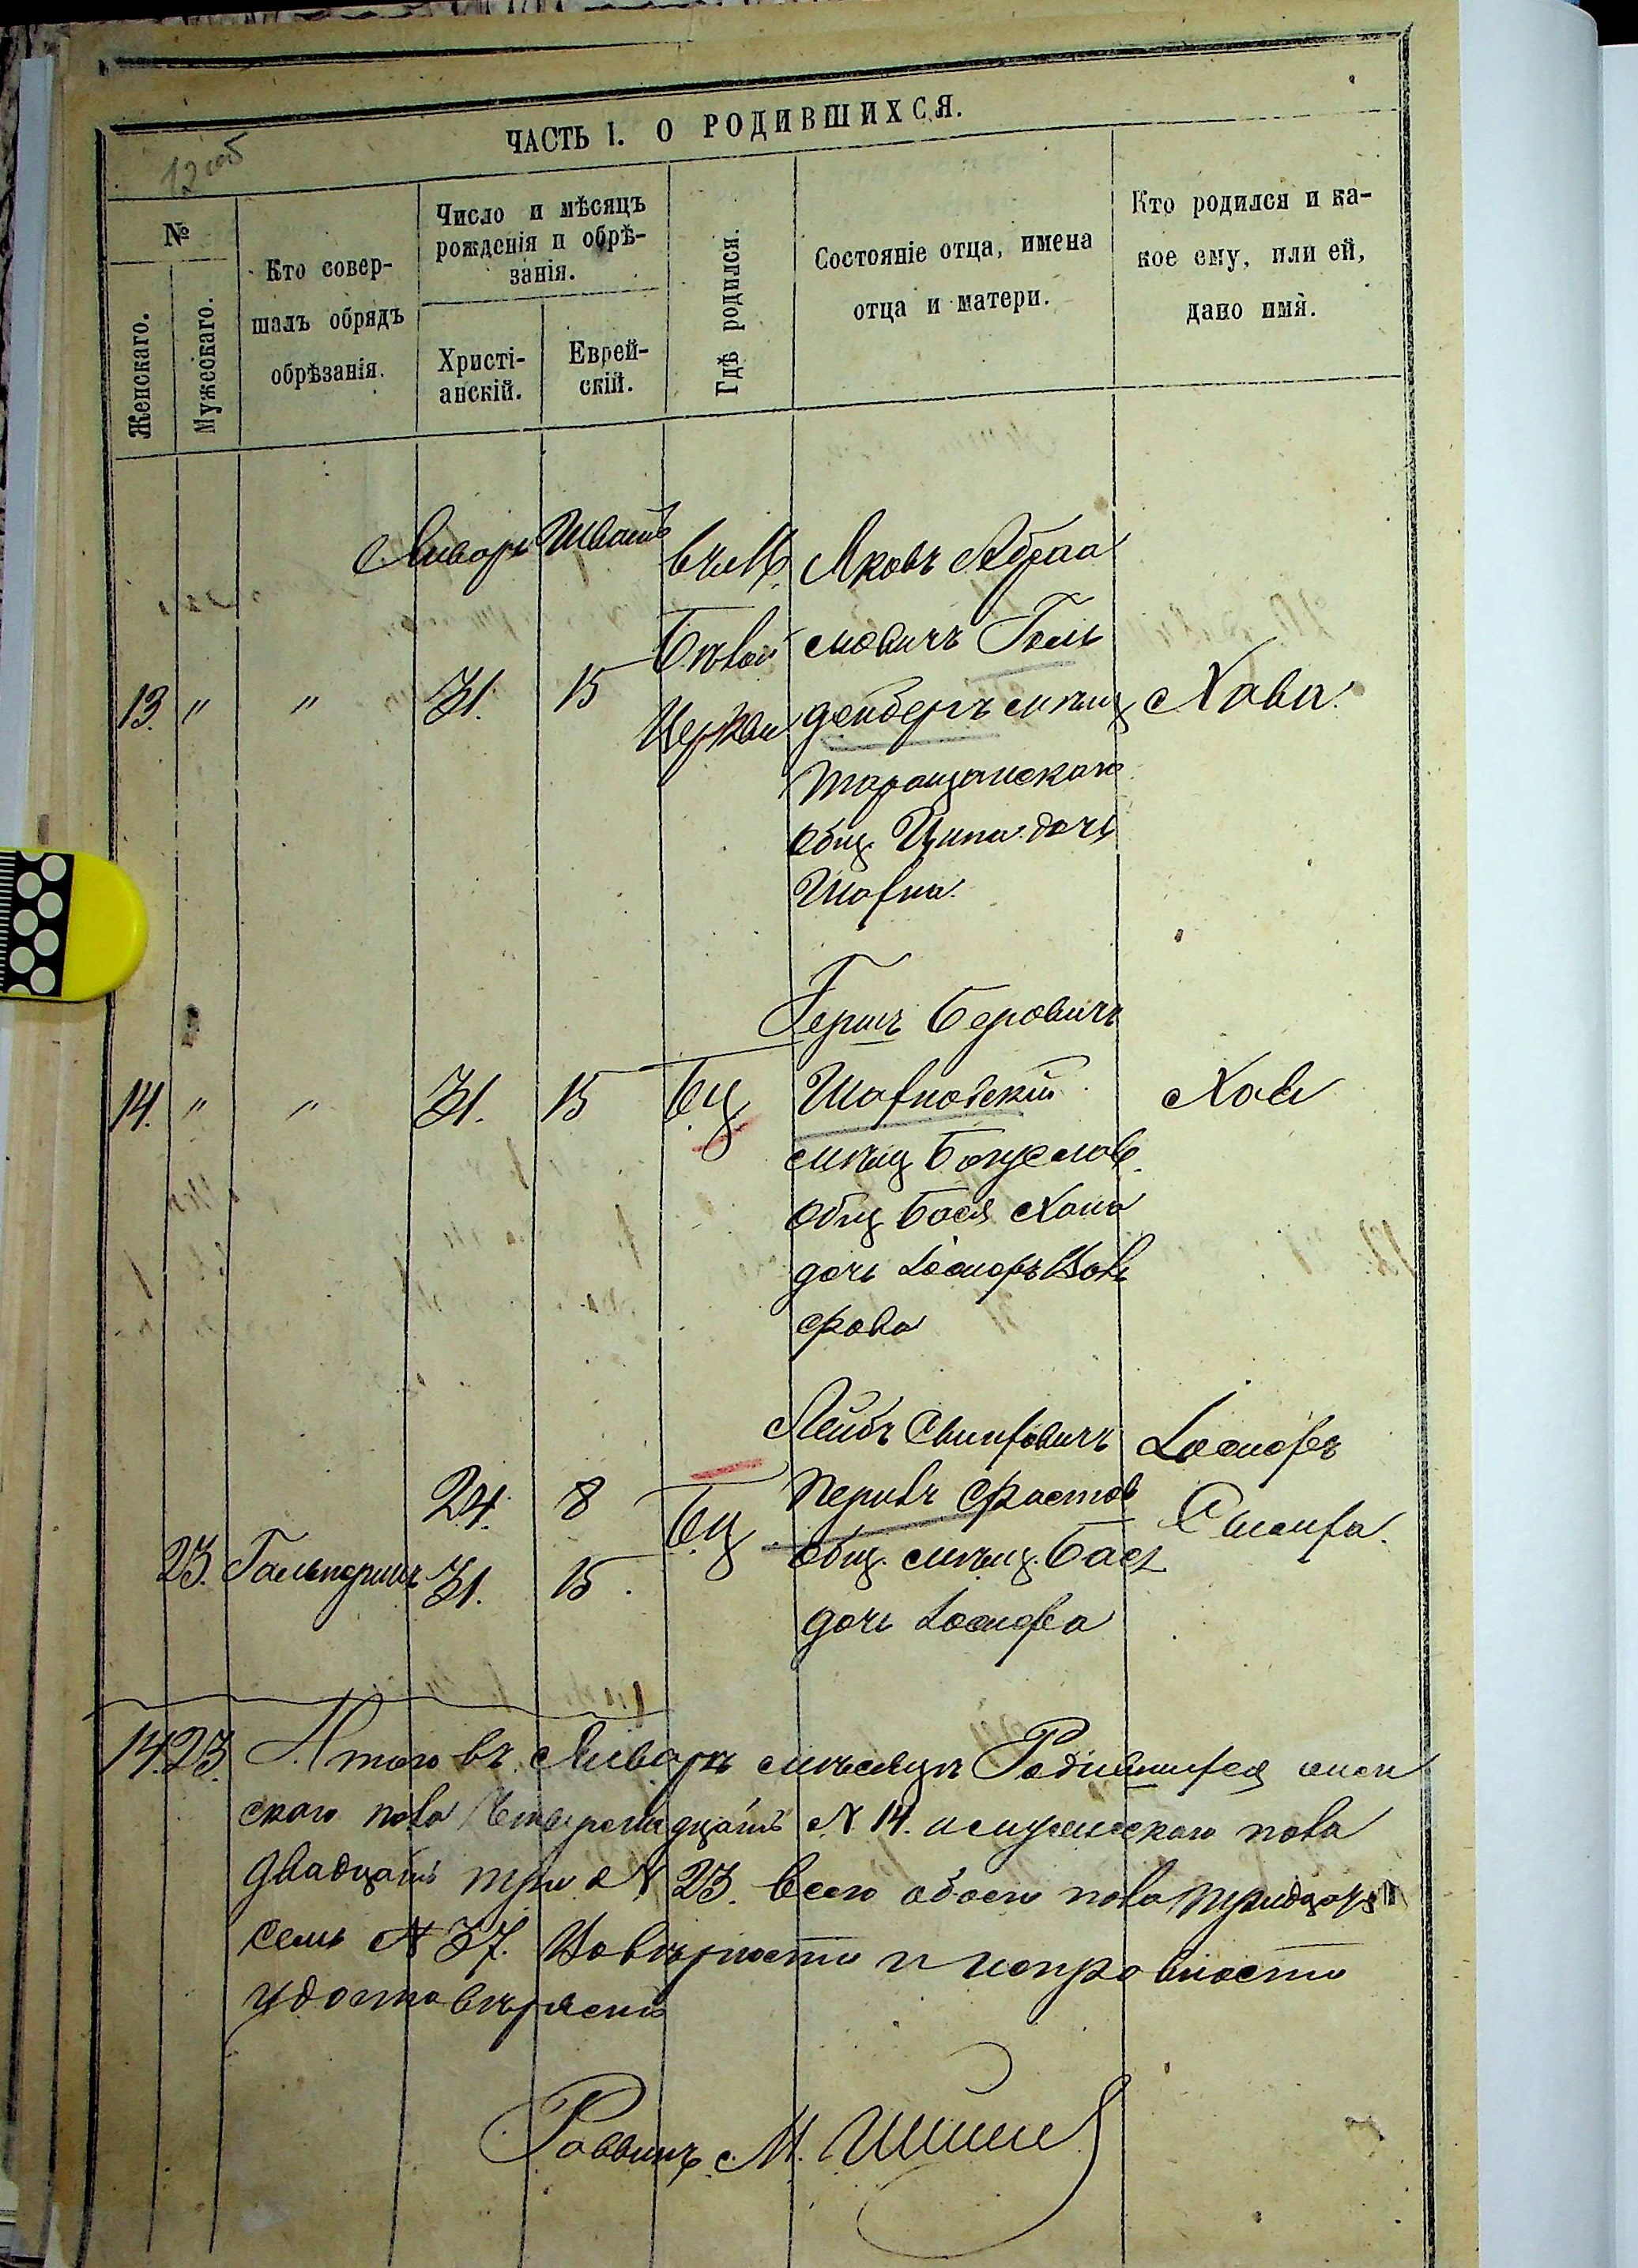 ЧАСТЬ I. О РОДИВШИХСЯ.
№
Женскаго.
Мужескаго.
Кто совер-
шалъ обрядъ
обрѣзанія.
Число и мѣсяцъ
рожденія и обрѣ-
занія.
Христі-
анскій.
Еврей-
скій.
Гдѣ родился.
Состояніе отца, имена
отца и матери.
Кто родился и ка-
кое ему, или ей,
дано имя.
Январь Шватъ
13. " " 31. 15
Бѣлой
Церкви
Яковъ Абра
мовичъ Голь
денбергъ мѣщ
таращанскаго
общ. Ципа дочь
Хава.
14. " " 31. 15 Б.Ц
Гершъ Беровичъ
мѣщ Богуслав.
общ Бася Хана
дочь Іосифъ Вол
фова
Хава
23. Гальперинъ
24. 8
31. 15
Б.Ц
Лейбъ
общ. мѣщ. Бася
дочь Іосифа
Іосифъ
Симха.
14 23. Итого въ Январѣ мѣсяцѣ Родившихся жен
скаго пола Четырнадцать № 14. и мужескаго пола
двадцать три № 23. всего обоего пола тридцать
семь № 37. Вовѣрности и исправности
удостовѣряемъ
Раввинъ М.